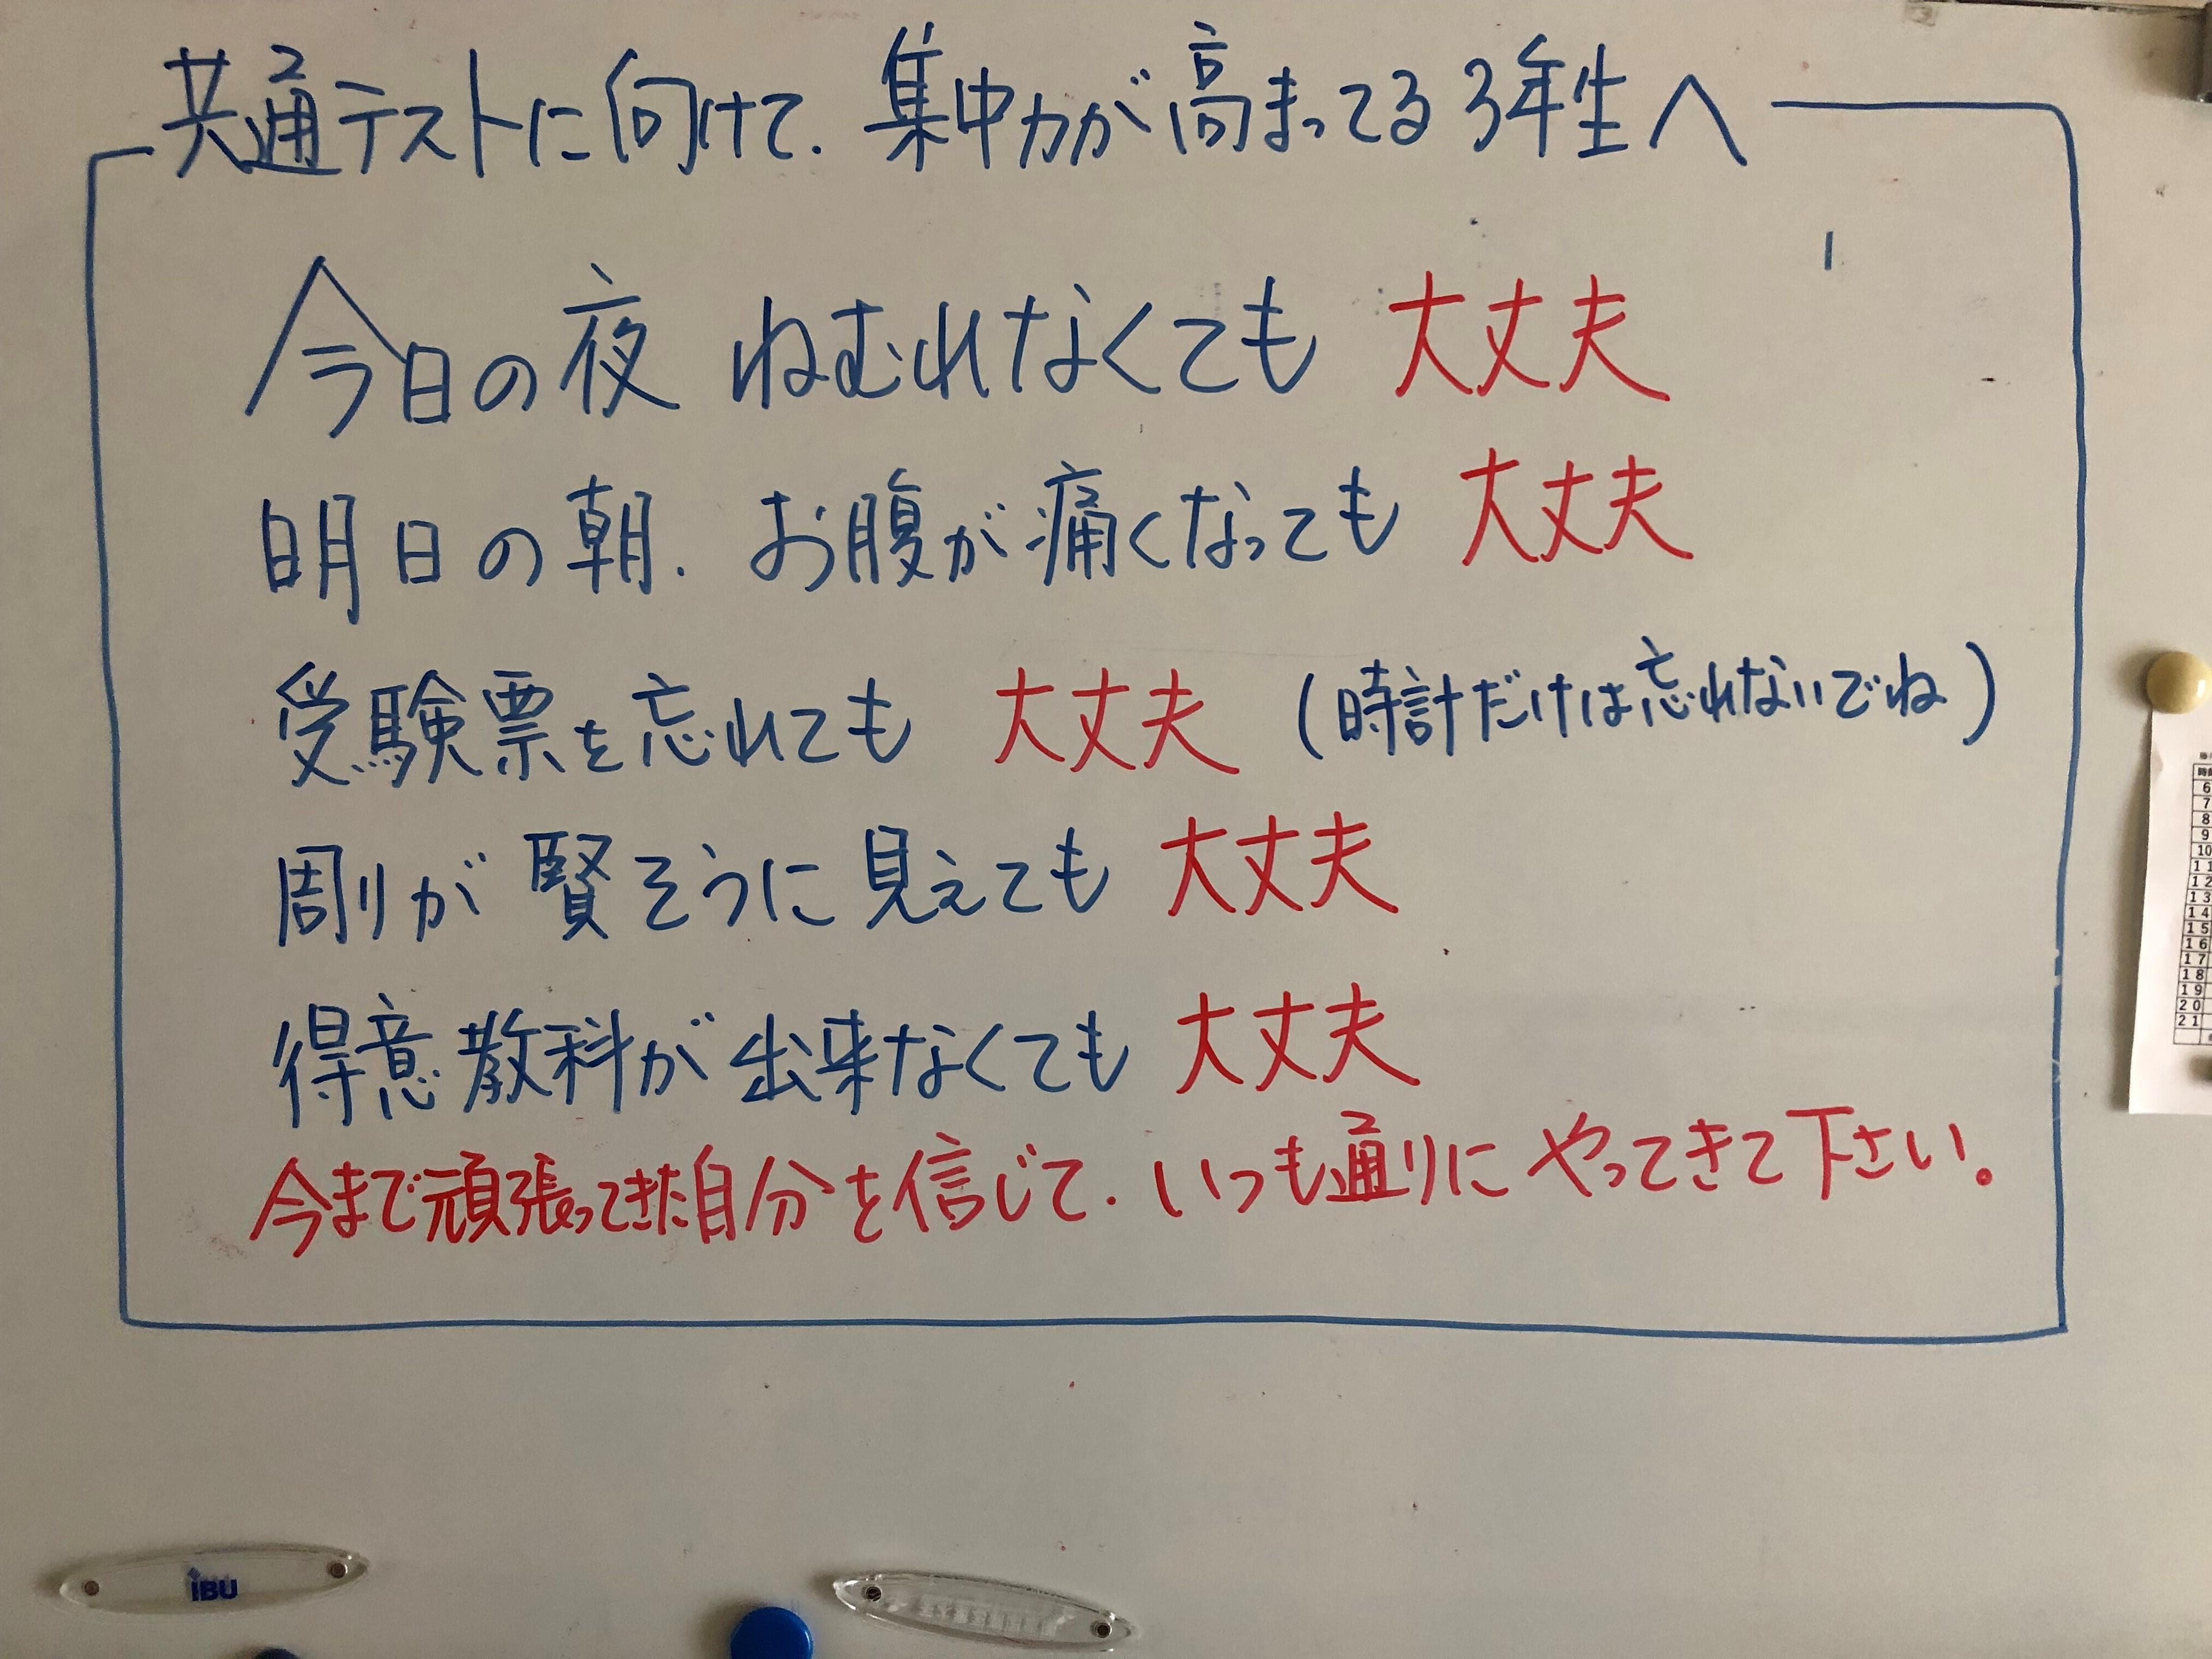 共通テストに向けて. 集中力が高まってる3年生へ
今日の夜 ねむれなくても 大丈夫
明日の朝. お腹が痛くなっても 大丈夫
受験票を忘れても 大丈夫 (時計だけは忘れないでね)
周りが賢そうに見えても 大丈夫
得意教科が出来なくても 大丈夫
今まで頑張ってきた自分を信じて. いつも通りに やってきて下さい。
6
7
8
9
10
11
12
13
14
15
16
17
18
19
20
21
iBU